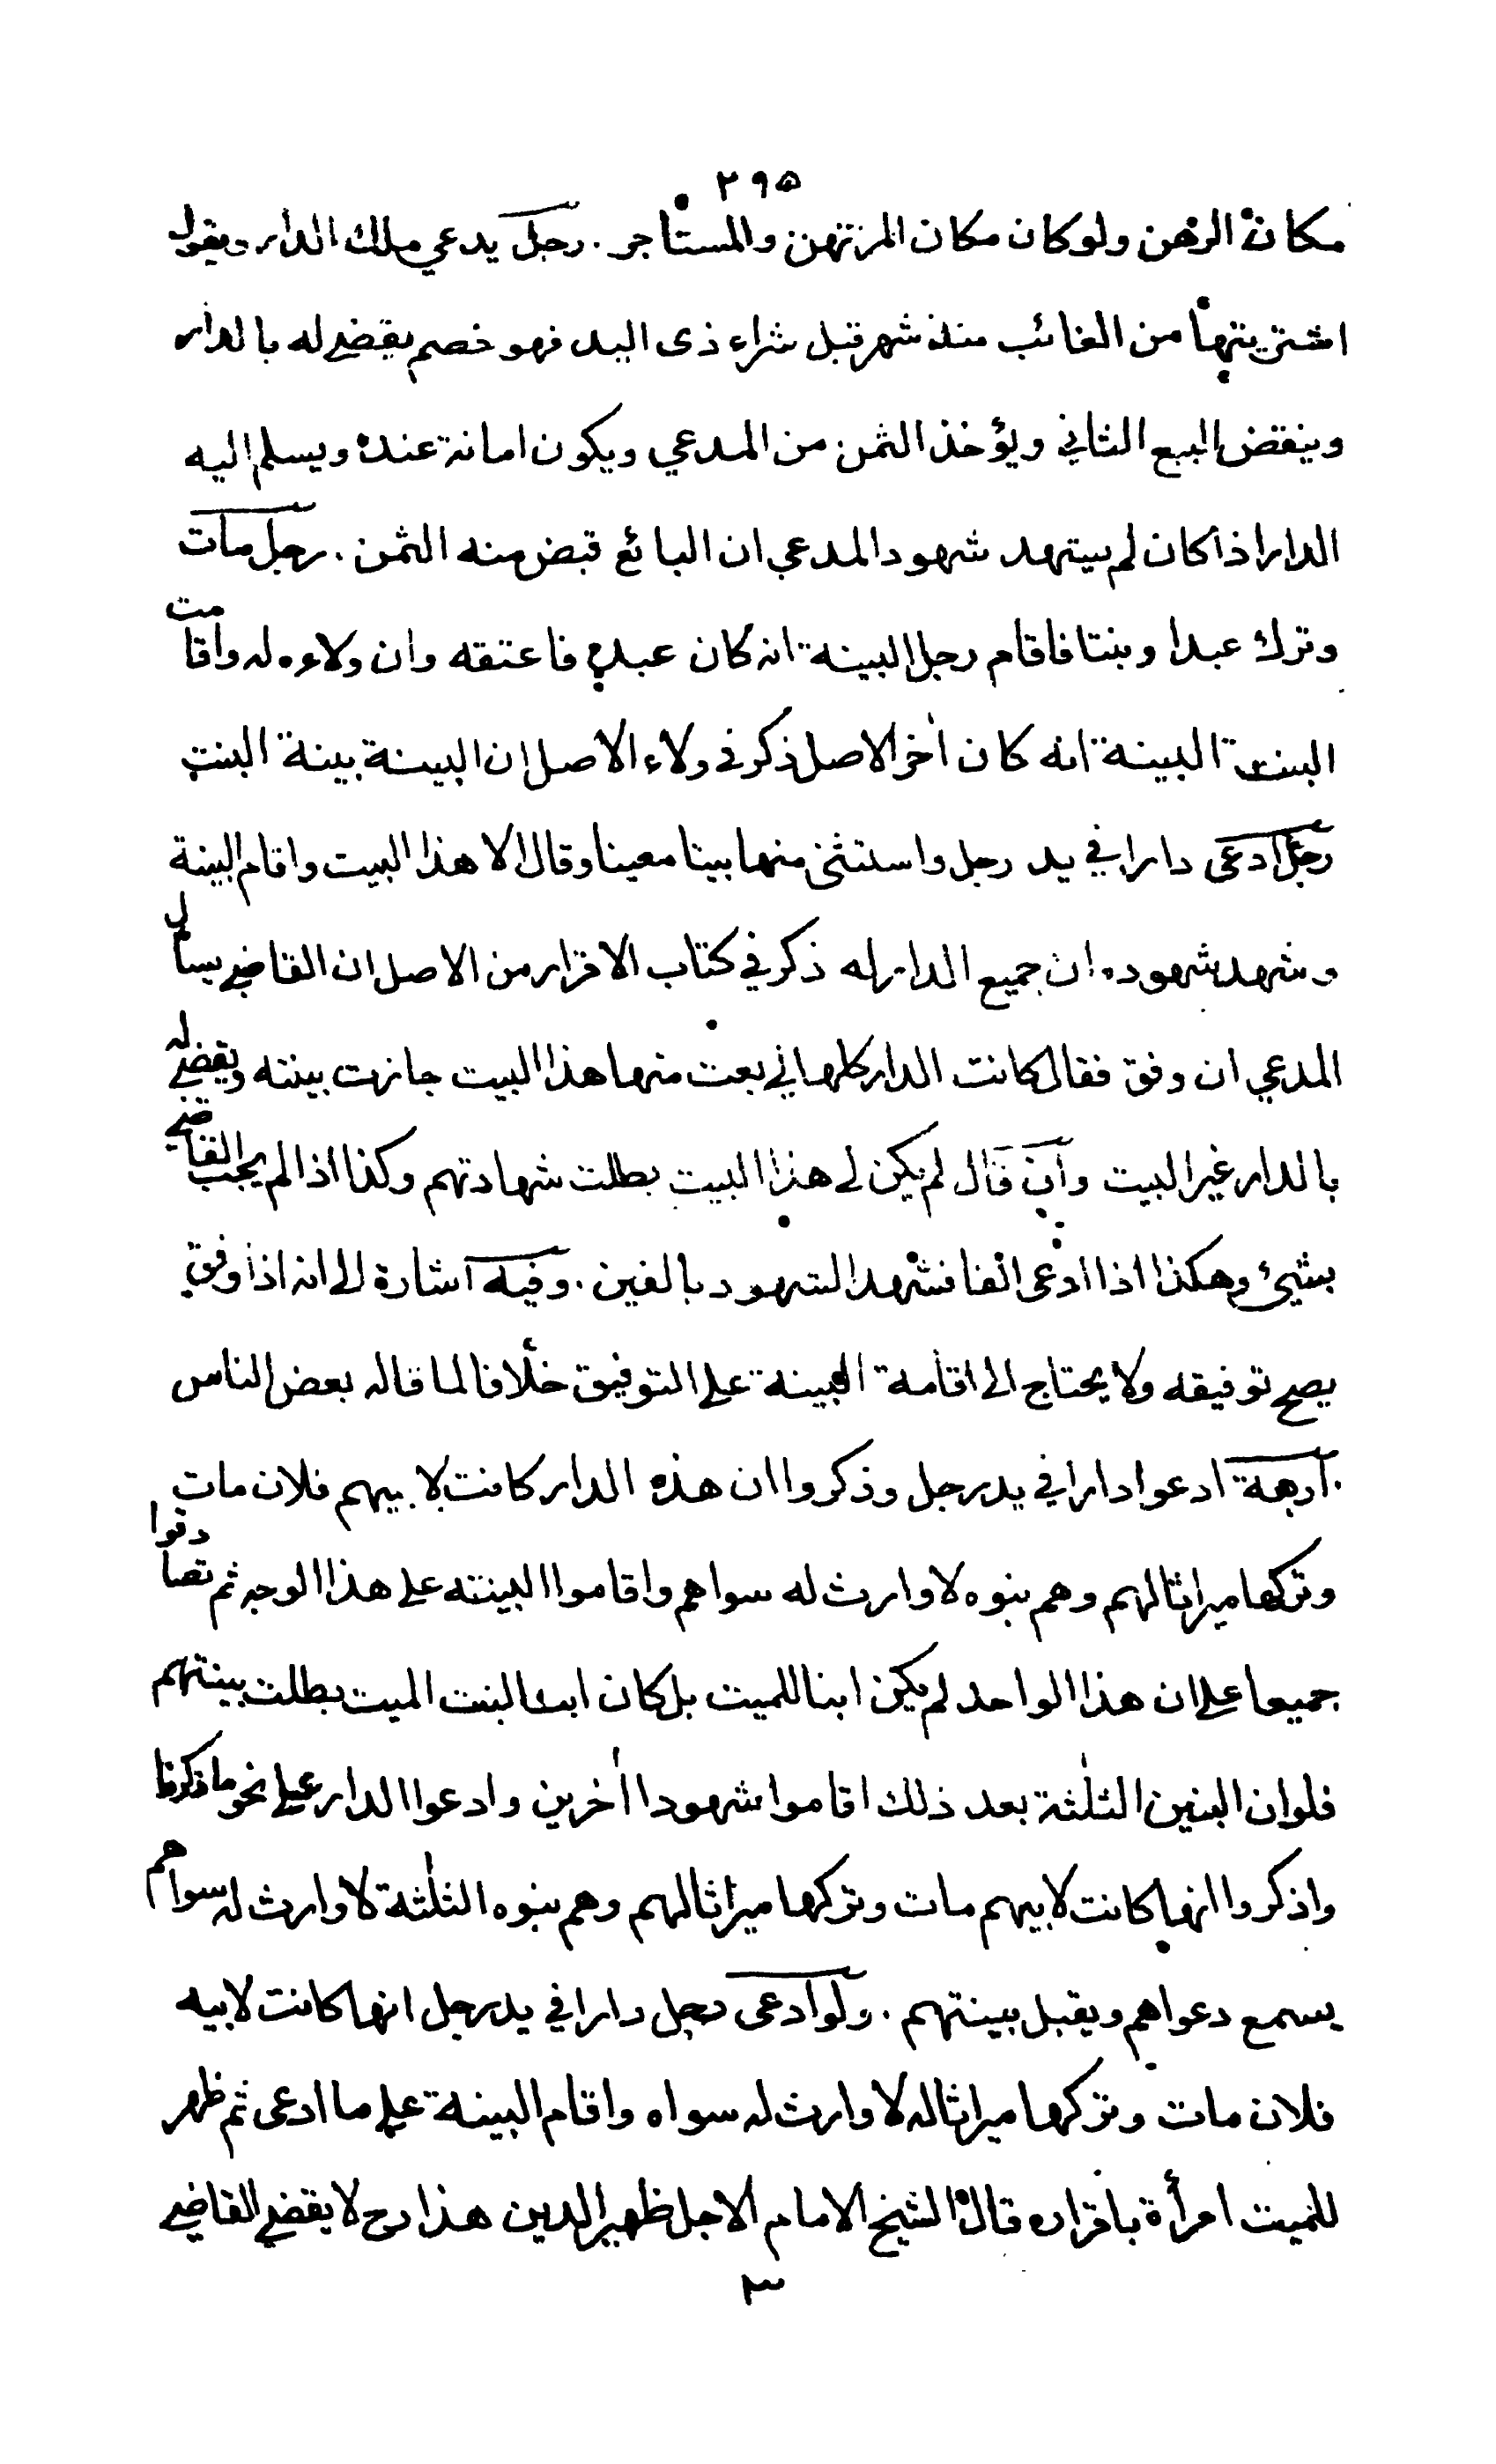 ٢٩٥
مكان الرهن ولو كان مكان المرتهن والمستأجر . رجل يدعي ملك الدار ويقول
اشتريتها من الغائب منذ شهر قبل شراء ذى اليد فهو خصم يقضى له بالدار
وينقض البيع الثاني ويؤخذ الثمن من المدعي ويكون امانة عنده ويسلم اليه
الدار اذا كان لم يشهد شهود المدعي ان البائع قبض منه الثمن . رجل مات
وترك عبدا وبنتا فاقام رجل البينة انه كان عبده فاعتقه وان ولاءه له واقامت
البنت البينة انه كان اخر الاصل ذكر في ولاء الاصل ان البينة بينة البنت
رجل ادعى دارا في يد رجل واستثنى منها بيتا معينا وقال الا هذا البيت واقام البينة
وشهد شهوده ان جميع الدار له ذكر في كتاب الاقرار من الاصل ان القاضي يسأل
المدعي ان وفق فقال كانت الدار كلها لي بعت منها هذا البيت جازت بينته ويقضى له
بالدار غير البيت وان قال لم يكن لي هذا البيت بطلت شهادتهم وكذا اذا لم يجب القاضي
بشيئ وهكذا اذا ادعى الفا فشهد الشهود بالفين . وفيه اشارة الى انه اذا وفق
يصح توفيقه ولا يحتاج الى اقامة البينة على التوفيق خلافا لما قاله بعض الناس
. اربعة ادعوا دارا في يد رجل وذكروا ان هذه الدار كانت لابيهم فلان مات
وتركها ميراثا لهم وهم بنوه لا وارث له سواهم واقاموا البينته على هذا الوجه ثم تصادقوا
جميعا على ان هذا الواحد لم يكن ابنا للميت بل كان ابنا لبنت الميت بطلت بينتهم
فلو ان البنين الثلثة بعد ذلك اقاموا شهودا اخرين وادعوا الدار على نحو ما ذكرنا
واذكروا انها كانت لابيهم مات وتركها ميراثا لهم وهم بنوه الثلثة لا وارث له سواهم
يسمع دعواهم ويقبل بينتهم . ولو ادعى رجل دارا في يد رجل انها كانت لابيه
فلان مات وتركها ميراثا له لا وارث له سواه واقام البينة على ما ادعى ثم ظهر
للميت امرأة باقراره قال الشيخ الامام الاجل ظهير الدين هذا رح لا يقضى القاضي